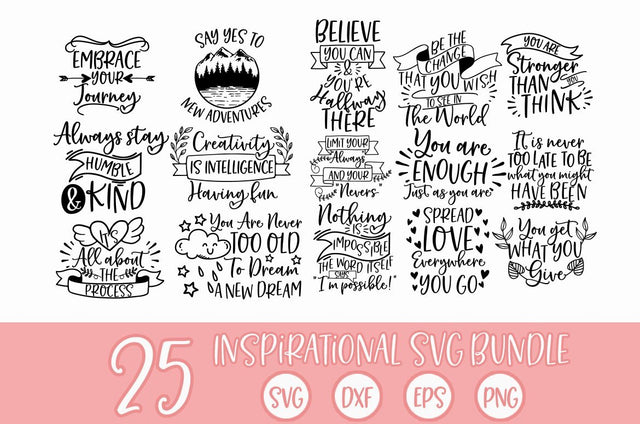 EMBRACE
YOUR
Journey
SAY YES TO
NEW ADVENTURES
BELIEVE
YOU CAN
&
YOU'RE
Halfway
THERE
BE THE
CHANGE
THAT YOU WISH
TO SEE IN
The World
YOU ARE
Stronger
THAN YOU
THINK
Always stay
HUMBLE
& KIND
Creativity
IS INTELLIGENCE
Having fun
LIMIT YOUR
"Always"
AND YOUR
"Nevers"
You are
ENOUGH
Just as you are
It is never
TOO LATE TO BE
what you might
HAVE BEEN
IT'S
All about
THE
PROCESS
You Are Never
TOO OLD
To Dream
A NEW DREAM
Nothing
IS
IMPOSSIBLE
THE WORD ITSELF
SAYS
"I'm possible!"
SPREAD
LOVE
Everywhere
YOU GO
You get
WHAT YOU
Give
25 INSPIRATIONAL SVG BUNDLE
SVG DXF EPS PNG